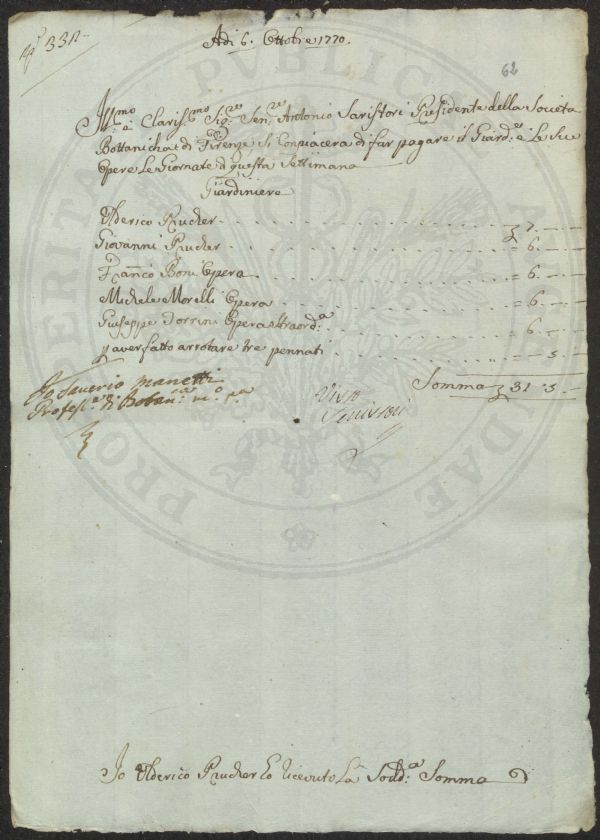 N° 332
62
Adi 6. Ottobre 1770.
Ill:mo e Claris:mo Sig:re Sen:re Antonio Saristori Presidente della Società
Bottanicha di Firenze Si Conpiacera di far pagare il Giard:e e Le Sue
Opere Le Giornate d questa Settimana
Giardiniere
Ulderico Prucker 7. — —
Giovanni Prucker = 6. — —
Franco Boni Opera = 6. — —
Michele Morelli Opera = 6. — —
Giuseppe Torrini Opera straord:a = 6. — —
p aver fatto arrotare tre pennati — 5. —
Somma 31. 5. —
Io Saverio Manetti
Profess:e di Botan:ca m:o p:a
Visto
Io Ulderico Prucker Ho ricevuto La Sodd:a Somma
PUBLICA
PROSPERITATI